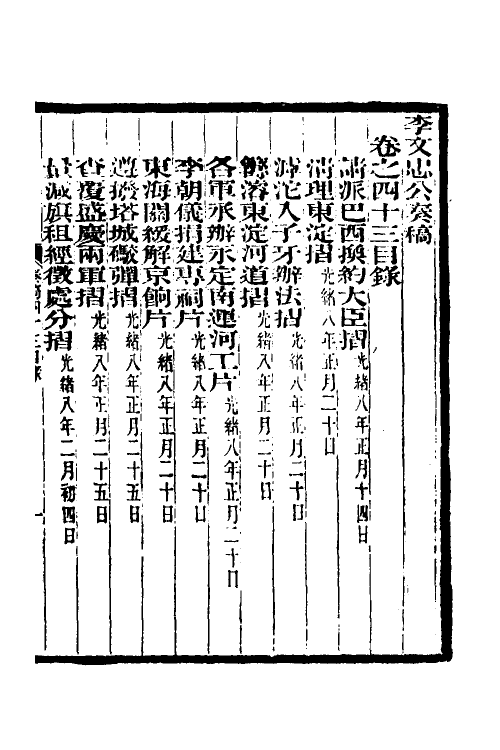 李文忠公奏稿
卷之四十三目錄
請派巴西換約大臣摺光緒八年正月十四日
清理東淀摺光緒八年正月二十日
滹沱入子牙辦法摺光緒八年正月二十日
東淀河道摺光緒八年正月二十日
各軍承辦永定南運河工片光緒八年正月二十日
李朝儀捐建專祠片光緒八年正月二十日
東海關緩解京餉片光緒八年正月二十日
撥塔城礮彈摺光緒八年正月二十五日
查覆盛慶兩軍摺光緒八年正月二十五日
量減旗租經徵處分摺光緒八年二月初四日
奏稿四十三目錄
一